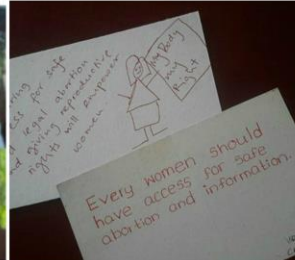 ess for safe
legal abortion
nd giving reproductive
rights will empower
women
My Body
my
Right
Every women should
have access for safe
abortion and information.